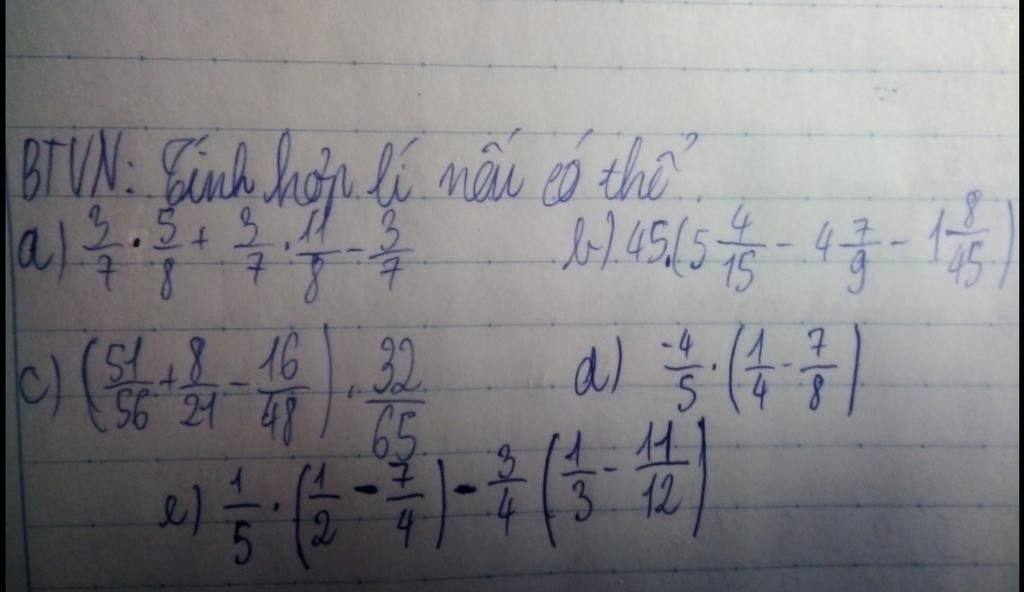 BTVN: Tính hợp lí nếu có thể.
a) 3/7 . 5/8 + 3/7 . 11/8 - 3/7 b) 45.(5 4/15 - 4 7/9 - 1 8/45)
c) (51/56 + 8/21 - 16/48) . 32/65 d) -4/5 . (1/4 - 7/8)
e) 1/5 . (1/2 - 7/4) - 3/4 (1/3 - 11/12)